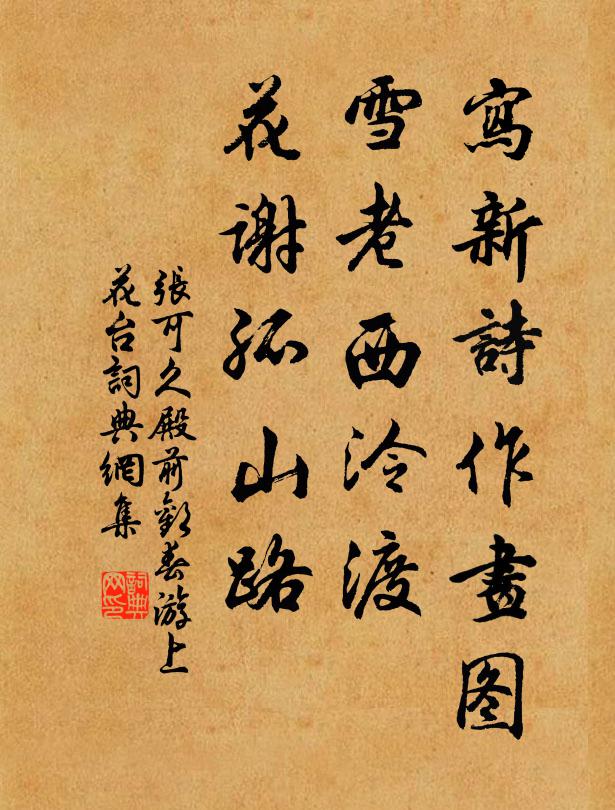 寫新詩作畫图
雪老西泠渡
花謝孤山路
張可久殿前歡春游上
花台詞典網集
詞典网印